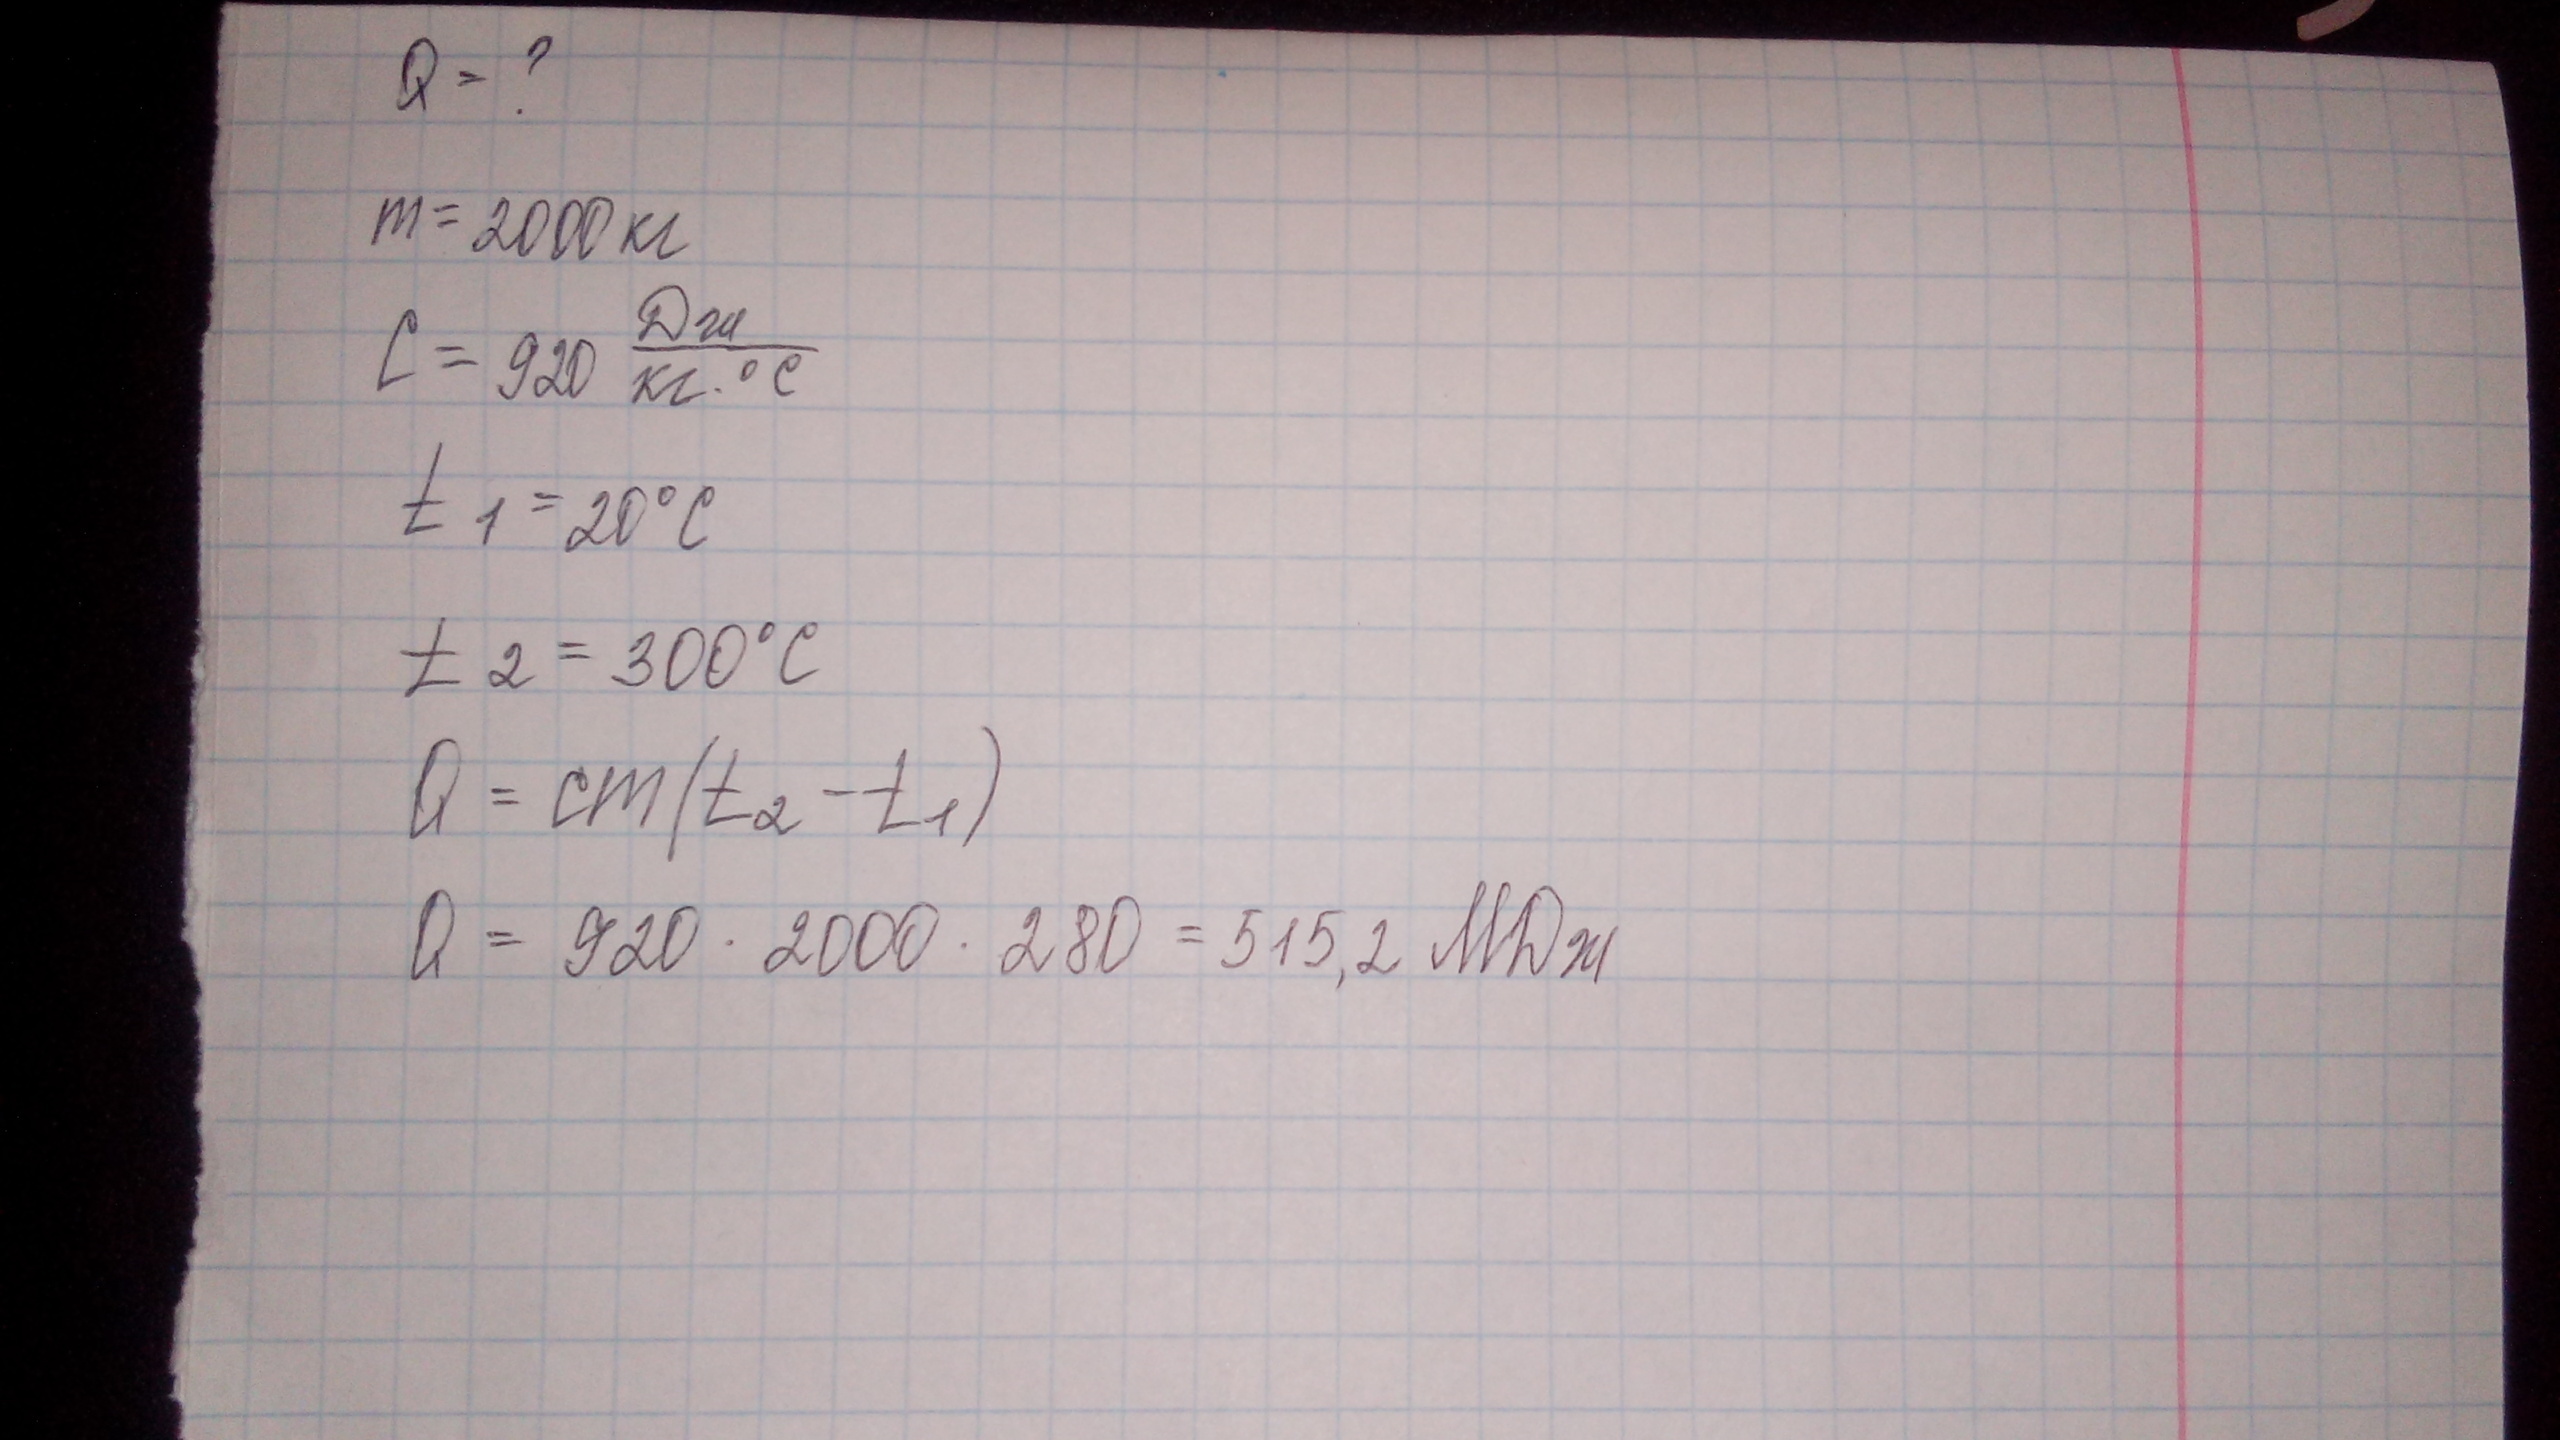 Q = ?
m = 2000 кг
C = 920 Дж/кг·°С
t1 = 20°C
t2 = 300°C
Q = cm(t2 - t1)
Q = 920 · 2000 · 280 = 515,2 МДж